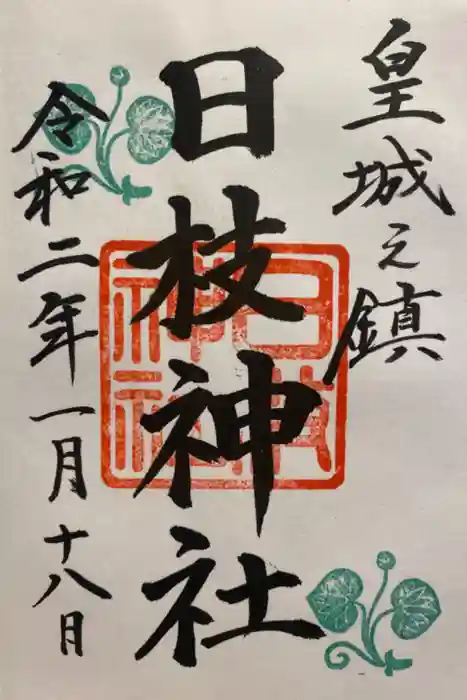 皇城之鎮
日枝神社
日枝神社
令和二年一月十八日